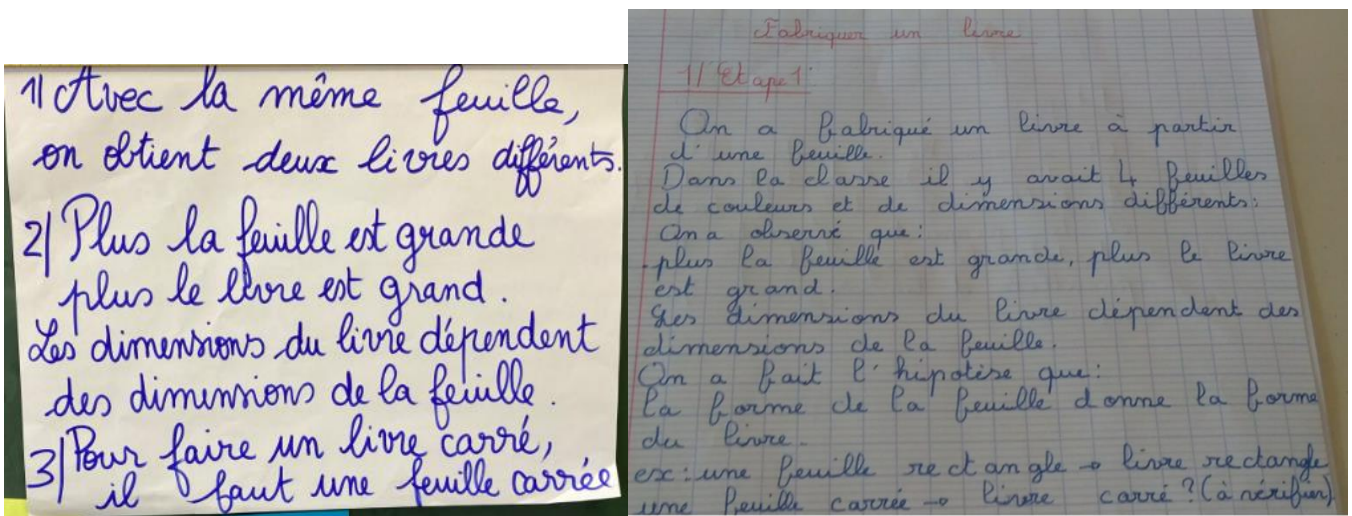 1) Avec la même feuille,
on obtient deux livres différents.
2) Plus la feuille est grande
plus le livre est grand.
Les dimensions du livre dépendent
des dimensions de la feuille.
3) Pour faire un livre carré,
il faut une feuille carrée
Fabriquer un livre
1/ Etape 1:
On a fabriqué un livre à partir
d'une feuille.
Dans la classe il y avait 4 feuilles
de couleurs et de dimensions différents:
On a observé que:
plus la feuille est grande, plus le livre
est grand.
Les dimensions du livre dépendent des
dimensions de la feuille.
On a fait l'hipotèse que:
la forme de la feuille donne la forme
du livre.
ex: une feuille rectangle → livre rectangle
une feuille carrée → livre carré? (à vérifier)